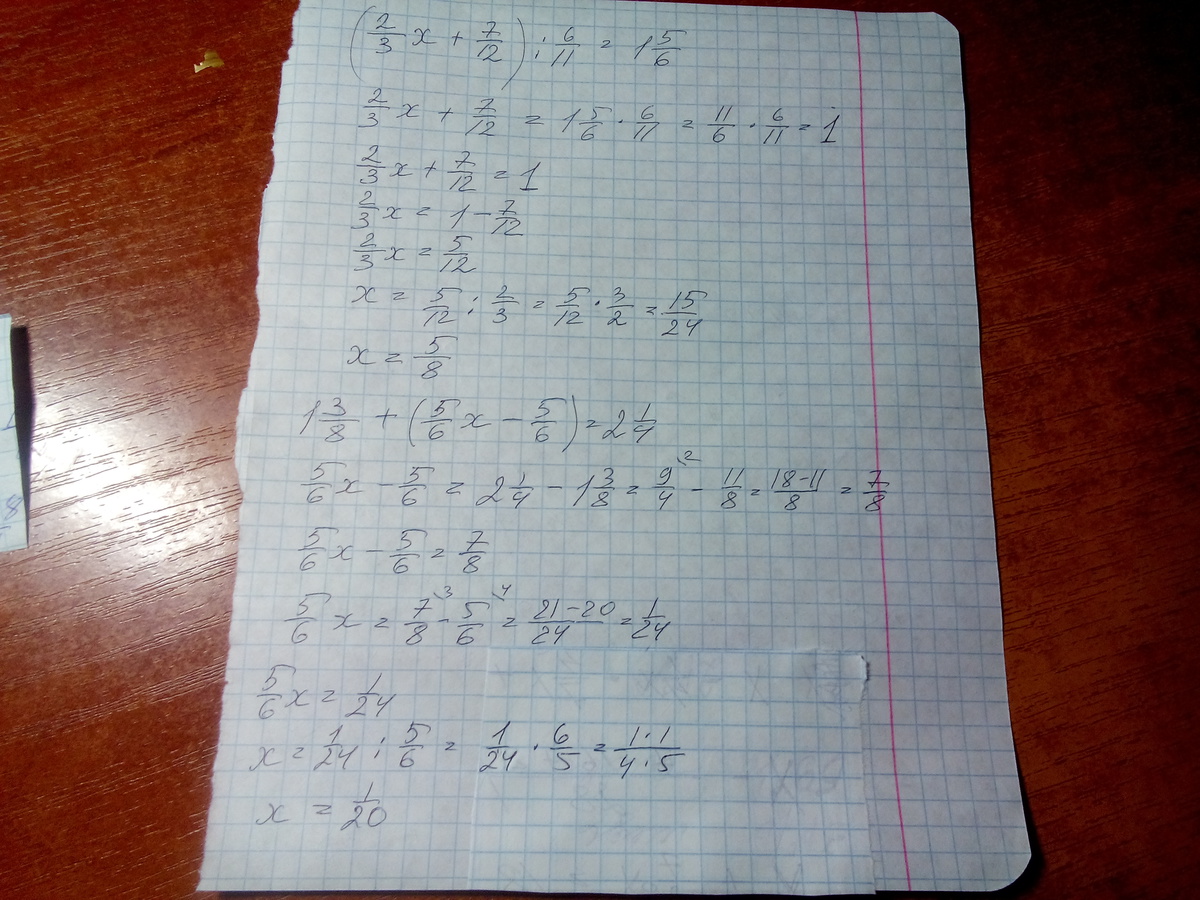 (2/3 x + 7/12) : 6/11 = 1 5/6
2/3 x + 7/12 = 1 5/6 · 6/11 = 11/6 · 6/11 = 1
2/3 x + 7/12 = 1
2/3 x = 1 - 7/12
2/3 x = 5/12
x = 5/12 : 2/3 = 5/12 · 3/2 = 15/24
x = 5/8
1 3/8 + (5/6 x - 5/6) = 2 1/4
5/6 x - 5/6 = 2 1/4 - 1 3/8 = 9/4 \2 - 11/8 = 18-11/8 = 7/8
5/6 x - 5/6 = 7/8
5/6 x = 7/8 \3 - 5/6 \4 = 21-20/24 = 1/24
5/6 x = 1/24
x = 1/24 : 5/6 = 1/24 · 6/5 = 1·1/4·5
x = 1/20